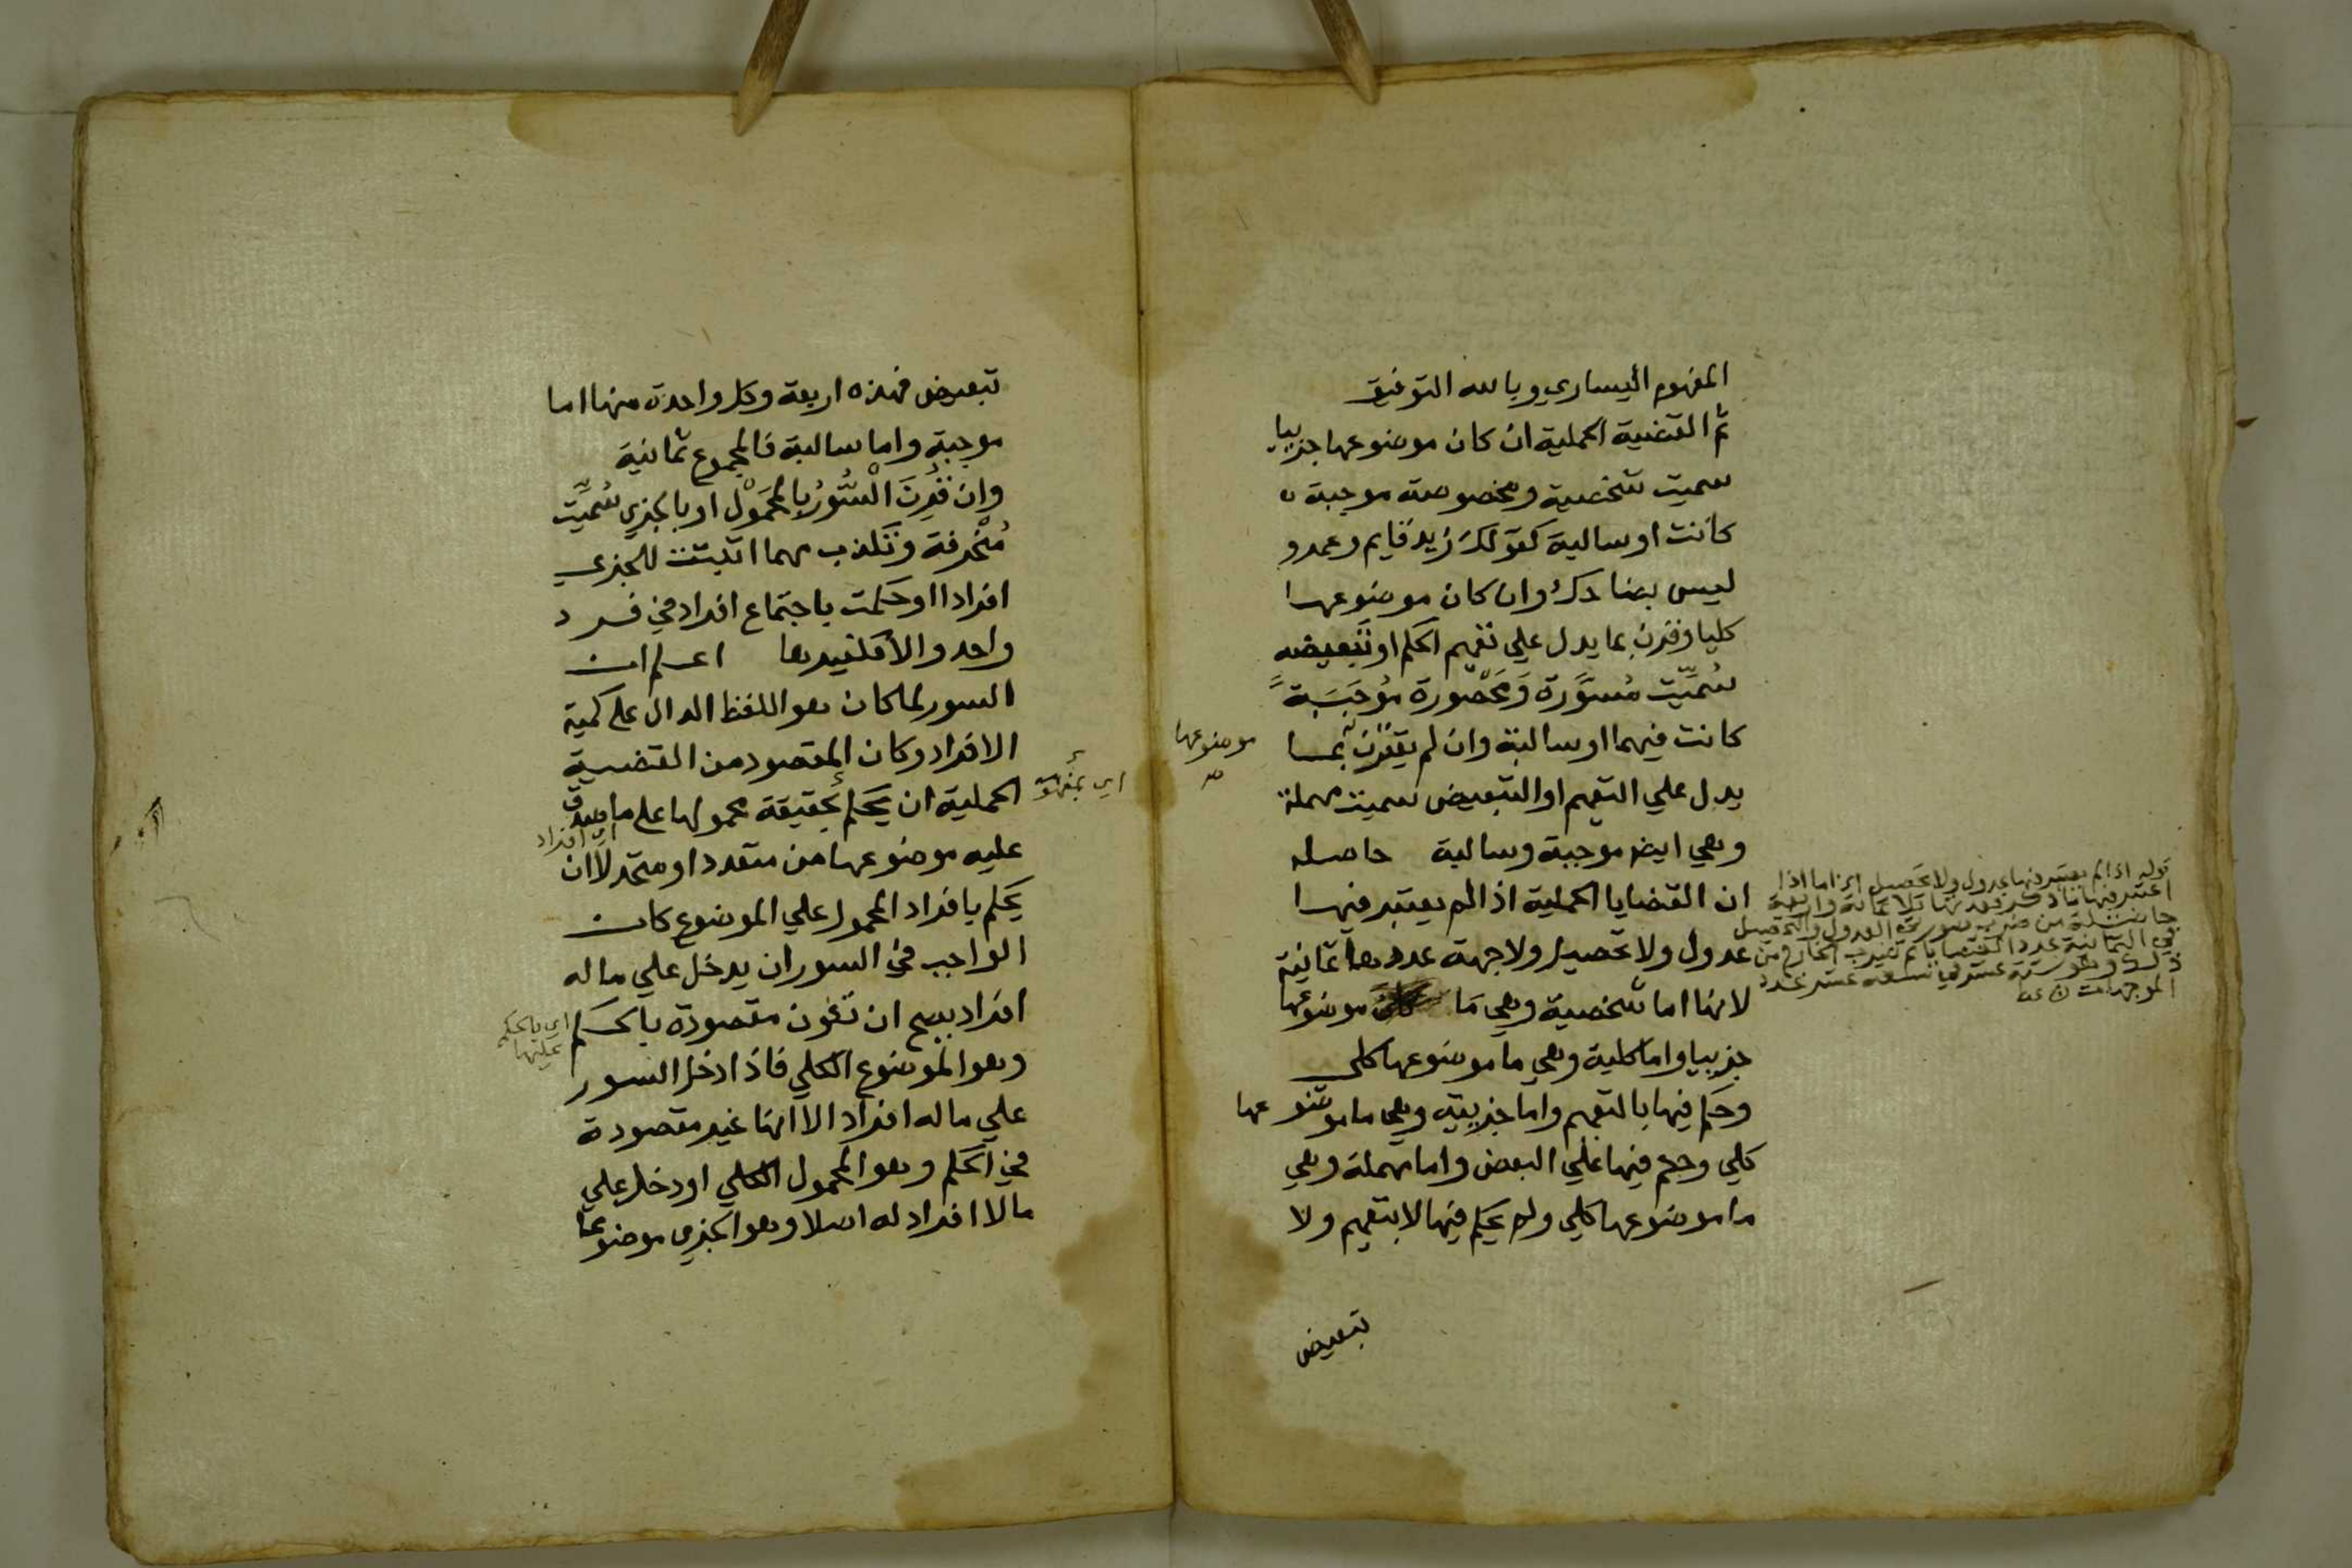 المفهوم اليساري وبالله التوفيق
ثم القضية الحملية ان كان موضوعها جزييا
سميت شخصية ومخصوصة موجبة
كانت او سالبة كقولك زيد قايم وعمرو
ليس بضاحك وان كان موضوعها
كليا وقرن بما يدل علي تعميم الحكم او تبعيضه
سُمِّيَت مُسوَّرة وَمَحْصُورة مُوجَبَةً
كانت فيهما او سالبة وان لم يقترن بما
موضوعها
صح
يدل علي التعميم او التبعيض سميت مهملة
وهي ايضا موجبة وسالبة حاصله
ان القضايا الحملية اذا لم يعتبر فيها
عدول ولا تحصيل ولا جهة عددها ثمانية
لانها اما شخصية وهي ما كان موضوعها
جزييا واما كلية وهي ما موضوعها كلي
وحكم فيها بالتعميم واما جزيية وهي ما موضوعها
كلي وحكم فيها علي البعض واما مهملة وهي
ما موضوعها كلي ولم يحكم فيها لا بتعميم ولا
تبعيض
قوله اذا لم يعتبر فيها عدول ولا تحصيل الخ اما اذا
اعتبر فيها ما ذكر فعددها ثلاثمائة واربعة
حاصلة من ضرب صورتي العدول والتحصيل
في الثمانية عدد القضايا ثم تضرب الخارج من
ذلك وهو ستة عشر في تسعة عشر عدد
الموجهات
تبعيض فهذه اربعة وكل واحدة منها اما
موجبة واما سالبة فالمجموع ثمانية
وان قُرِنَ السُّورُ بالمحمَوْل او بالجزيِ سُمِّيَت
مُنْحَرفة وتكذب مهما اثبتت للجزي
افرادا او حكمت باجتماع افراد في فرد
واحد والا فكغيرها اعلم ان
السور لما كان هو اللفظ الدال علي كمية
الافراد وكان المقصود من القضية
الحملية ان يحكم بحقيقة محمولها علي ما صدق
اي بمفهومه
اي افراد
عليه موضوعها من متعدد او متحد لا ان
يحكم بافراد المحمول علي الموضوع كان
الواجب في السور ان يدخل علي ما له
افراد يصح ان تكون مقصودة بالحكم
اي بالحكم
عليها
وهو الموضوع الكلي فاذا دخل السور
علي ما له افراد الا انها غير مقصودة
في الحكم وهو المحمول الكلي او دخل علي
ما لا افراد له اصلا وهو الجزي موضوعا